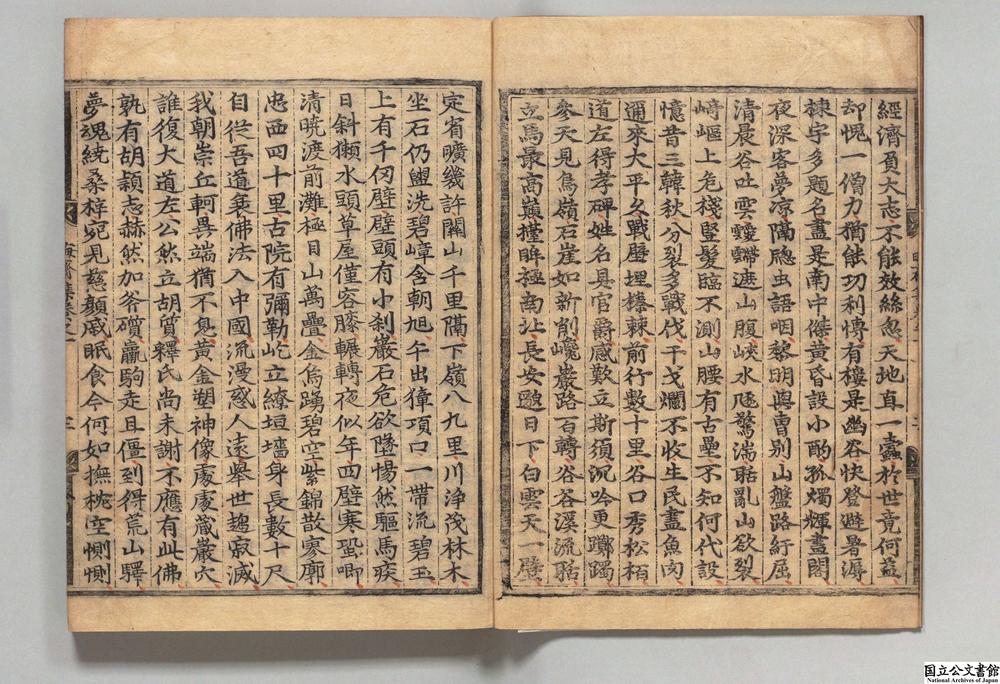 經濟負大志不能效絲忽天地直一蠹於世竟何益
却愧一僧力猶能功利愽有樓是幽谷快登避暑溽
棟宇多題名盡是南中傑黃昏設小酌孤燭輝畫閣
夜深客夢凉隔窓虫語咽黎明與曺別山盤路紆屈
清晨谷吐雲靉靆遮山腹峽水怒驚湍聒亂山欲裂
崎嶇上危棧竪髮臨不測山腰有古壘不知何代設
憶昔三韓秋分裂多戰伐干戈爛不收生民盡魚肉
邇來大平久戰壁埋榛棘前行數十里谷口秀松栢
道左得孝碑姓名具官爵感歎立斯須沉吟更躑躅
參天見鳥嶺石崖如新削巉巖路百轉谷谷瀑流聒
立馬最高巔擡眸極南北長安題日下白雲天一壁
定省曠幾許關山千里隔下嶺八九里川淨茂林木
坐石仍盥洗碧嶂含朝旭午出獐項口一帶流碧玉
上有千仞壁壁頭有小刹巖石危欲墜惕然驅馬疾
日斜獺水頭草屋僅容膝輾轉夜似年四壁寒蛩唧
清曉渡前灘極目山萬疊金烏踴碧空紫錦散寥廓
忠西四十里古院有彌勒屹立繚垣墻身長數十尺
自從吾道衰佛法入中國流漫惑人遠舉世趨寂滅
我朝崇丘軻異端猶不息黃金塑神像處處藏巖穴
誰復大道左公然立胡質釋氏尚未謝不應有此佛
孰有胡頴志赫然加斧礩羸駒走且僵到得荒山驛
夢魂繞桑梓宛見慈顏戚眠食今何如撫枕空惻惻
晦齋集卷之一
三
国立公文書館
National Archives of Japan